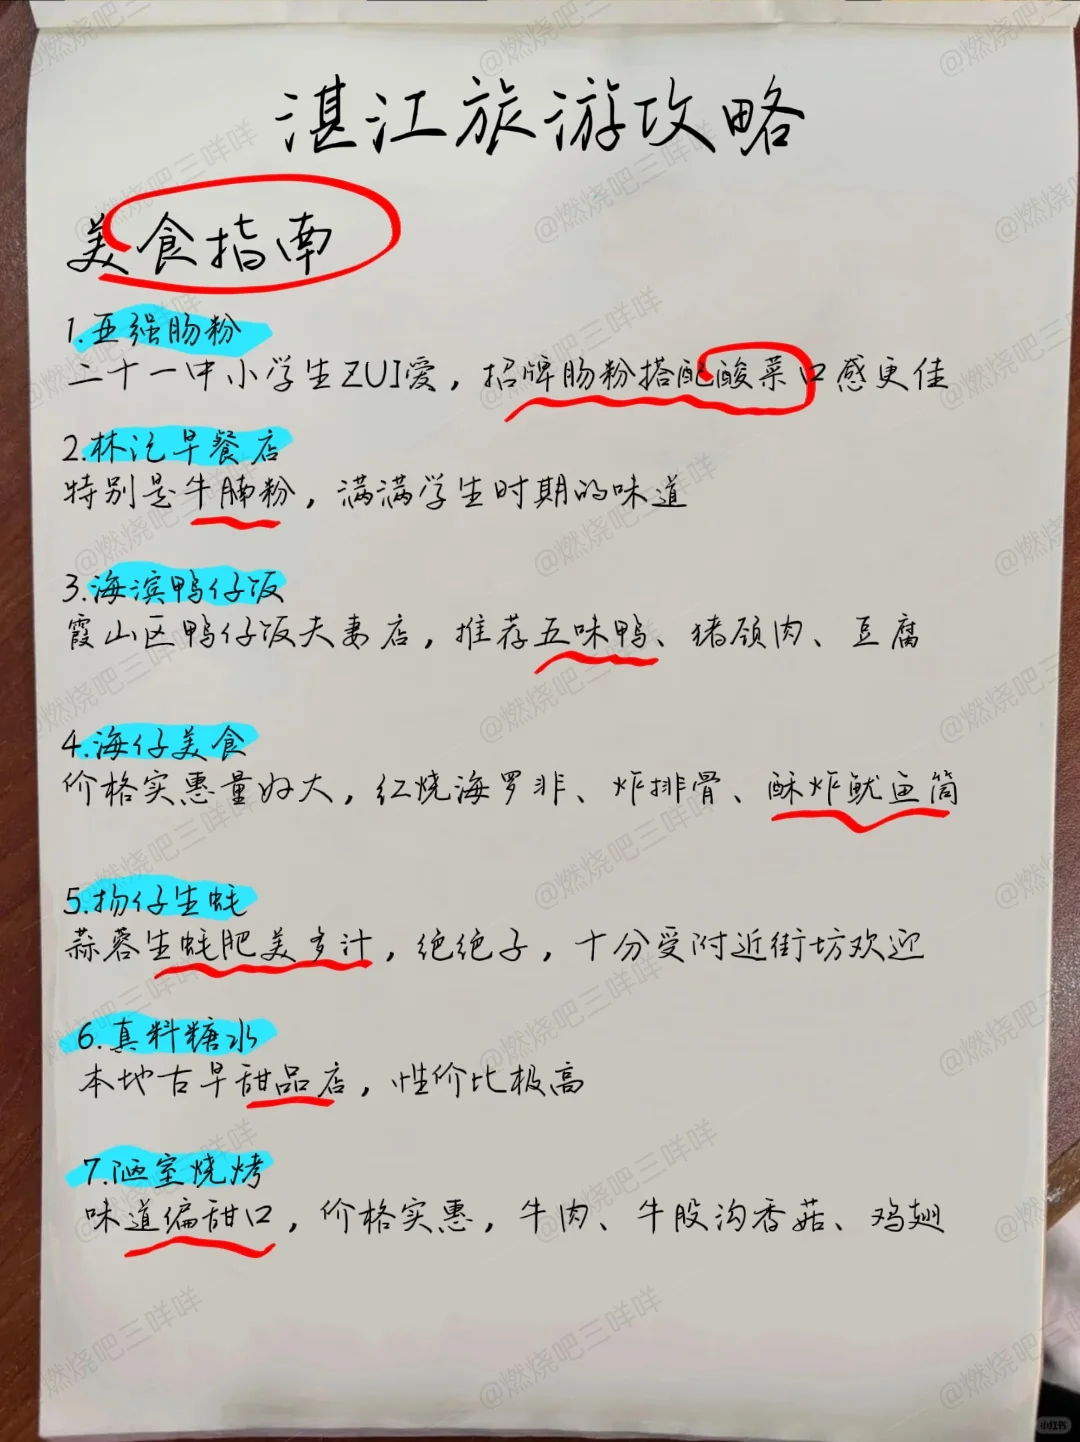 湛江旅游攻略
美食指南
1.亚强肠粉
二十一中小学生ZUI爱，招牌肠粉搭配酸菜口感更佳
2.林记早餐店
特别是牛腩粉，满满学生时期的味道
3.海滨鸭仔饭
霞山区鸭仔饭夫妻店，推荐五味鸭、猪颈肉、豆腐
4.海仔美食
价格实惠量好大，红烧海罗非、炸排骨、酥炸鱿鱼筒
5.扬仔生蚝
蒜蓉生蚝肥美多汁，绝绝子，十分受附近街坊欢迎
6.真料糖水
本地古早甜品店，性价比极高
7.陋室烧烤
味道偏甜口，价格实惠，牛肉、牛股沟香菇、鸡翅
@燃烧吧三咩咩
小红书